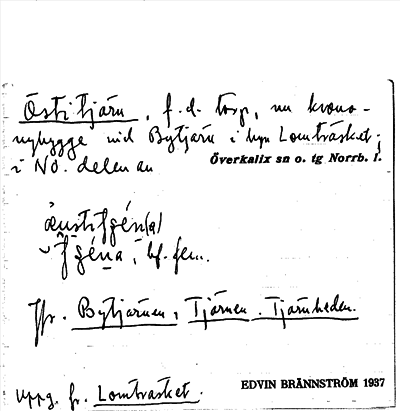 Östitjärn, f.d. torp, nu krono-
nybygge vid Bytjärn i byn Lomträsket;
i NO. delen av
Överkalix sn o. tg Norrb. l.
bf. fem.
Jfr. Bytjärnen, Tjärnen, Tjärnheden.
Uppg. fr. Lomträsket.
EDVIN BRÄNNSTRÖM 1937